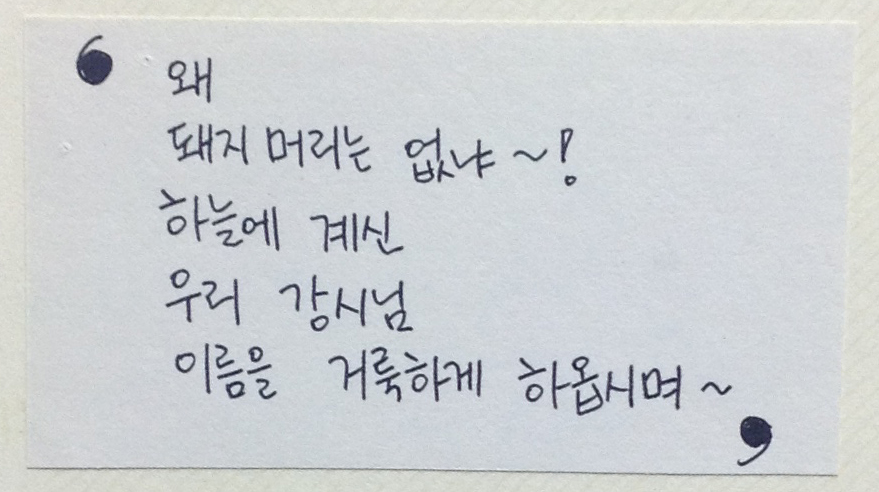 ‘ 왜
돼지 머리는 없냐~!
하늘에 계신
우리 강시님
이름을 거룩하게 하옵시며~ ’